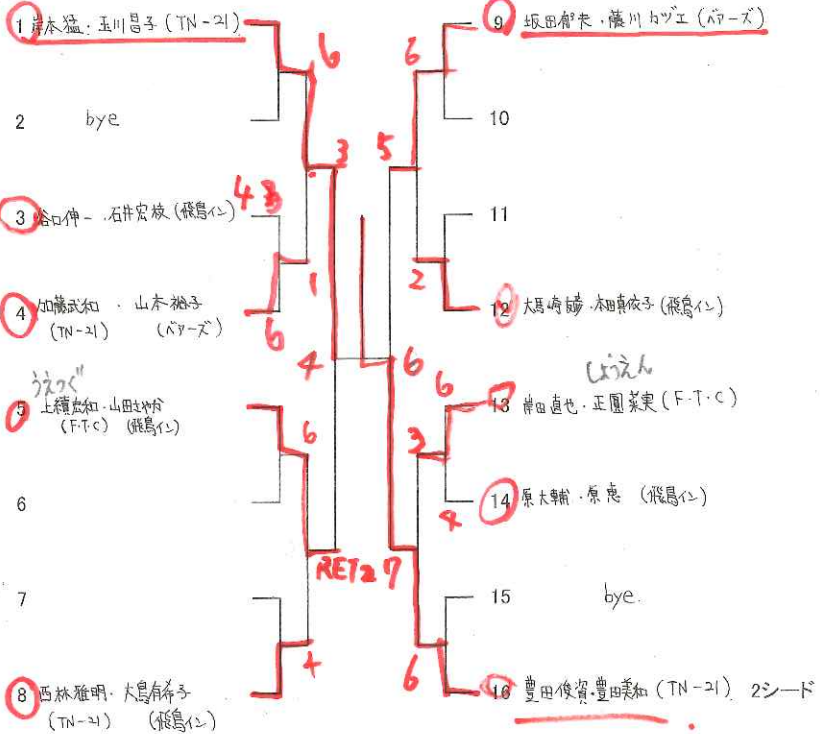 1 岸本猛・玉川昌子 (TN-21)
2 bye
3 谷口伸一・石井宏枝 (飛鳥イン)
4 加藤武和・山本裕子
(TN-21) (ベアーズ)
うえつぐ
5 上續宏和・山田さやか
(F・T・C) (飛鳥イン)
6
7
8 西林雅明・大鳥有希子
(TN-21) (飛鳥イン)
6
3
4
1
6
4
6
RET 2
4
9 坂田郁夫・藤川カヅエ (ベアーズ)
10
11
12 本田真依子 (飛鳥イン)
しょうえん
13 岸田直也・正圓菜実 (F・T・C)
14 原大輔・原恵 (飛鳥イン)
15 bye.
16 豊田俊資・豊田美和 (TN-21) 2シード
6
5
2
6
6
3
4
7
6